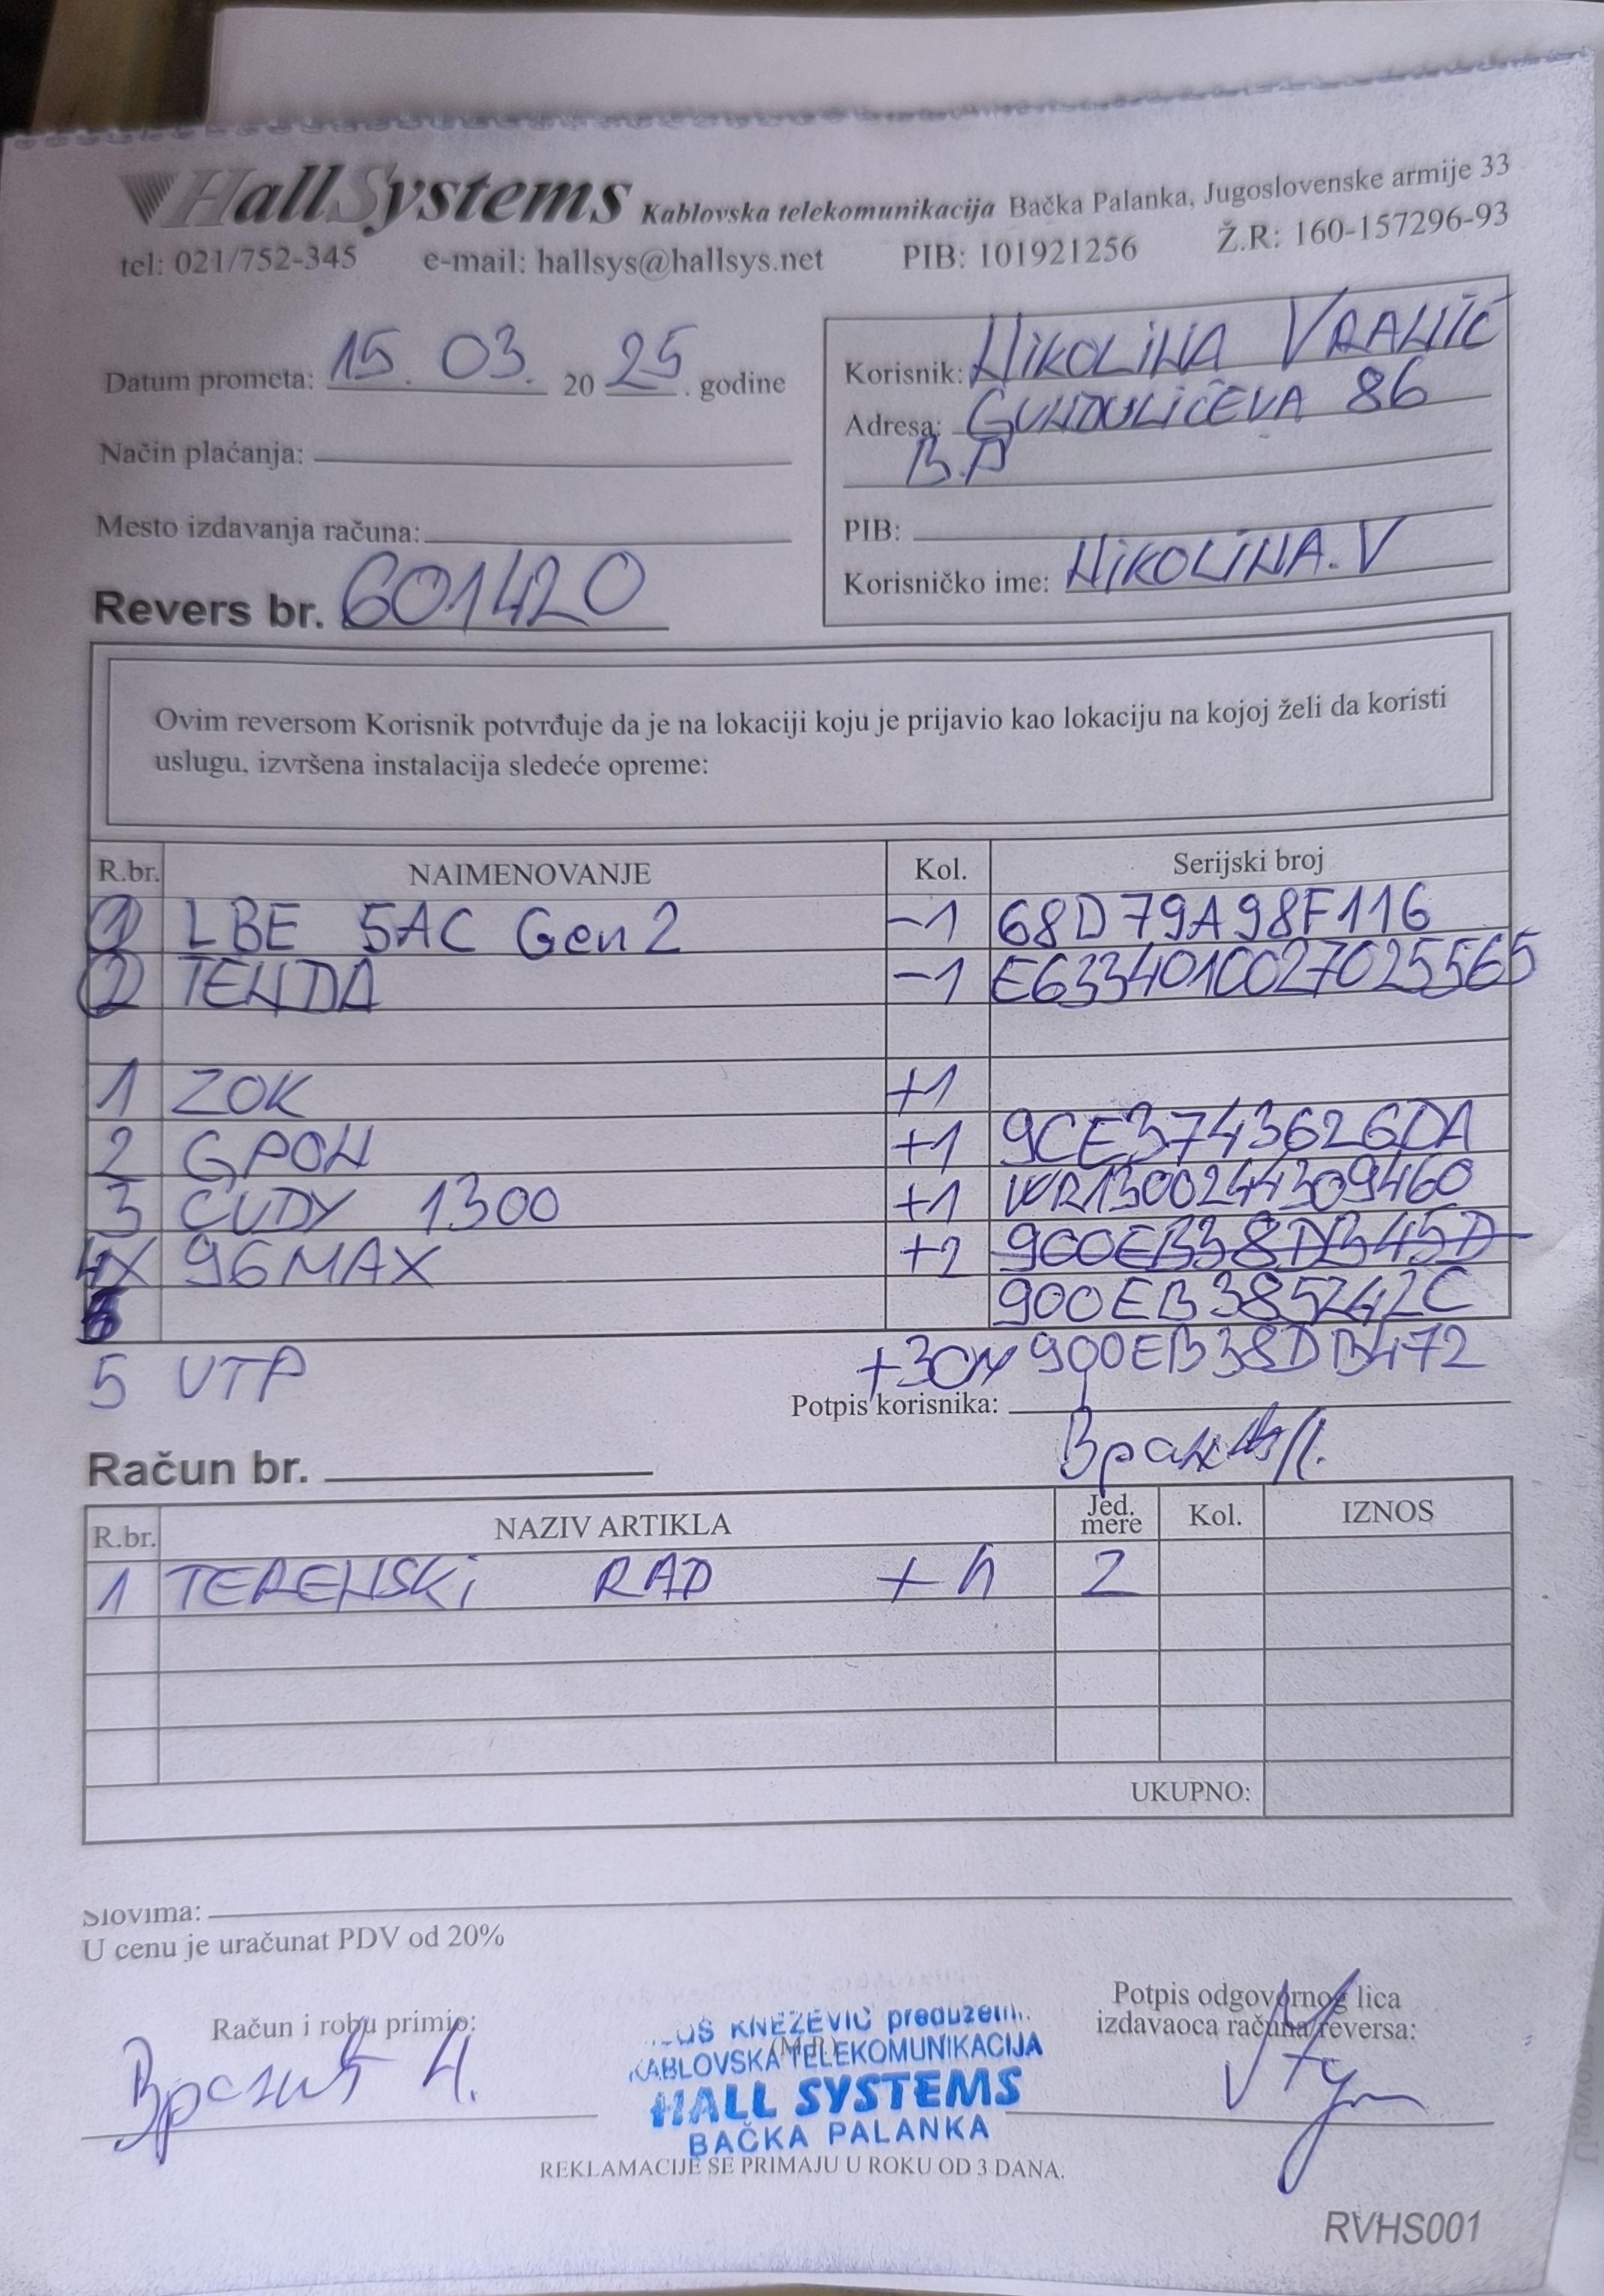 HallSystems Kablovska telekomunikacija Bačka Palanka, Jugoslovenske armije 33
tel: 021/752-345 e-mail: hallsys@hallsys.net PIB: 101921256 Ž.R: 160-157296-93
Datum prometa: 15. 03. 2025. godine
Način plaćanja:
Mesto izdavanja računa:
Revers br. 601420
Korisnik: NIKOLINA VRANIĆ
Adresa: GUNDULIĆEVA 86
B.P
PIB:
Korisničko ime: NIKOLINA.V
Ovim reversom Korisnik potvrđuje da je na lokaciji koju je prijavio kao lokaciju na kojoj želi da koristi
uslugu, izvršena instalacija sledeće opreme:
R.br. NAIMENOVANJE Kol. Serijski broj
1 LBE 5AC Gen2 -1 68D79A98F116
2 TENDA -1 E6334010027025565
1 ZOK +1
2 GPON +1 9CE3743626DA
3 CUDY 1300 +1 WR1300244309460
4X 96MAX +2 900EB38DB45D
900EB385242C
5 UTP +30M 900EB38DB472
Potpis korisnika:
Račun br.
R.br. NAZIV ARTIKLA Jed. mere Kol. IZNOS
1 TERENSKI RAD + h 2
UKUPNO:
Slovima:
U cenu je uračunat PDV od 20%
Račun i robu primio:
Вранић Н.
(M.P.)
KNEŽEVIĆ preduzetn.
KABLOVSKA TELEKOMUNIKACIJA
HALL SYSTEMS
BAČKA PALANKA
Potpis odgovornog lica
izdavaoca računa/reversa:
REKLAMACIJE SE PRIMAJU U ROKU OD 3 DANA.
RVHS001